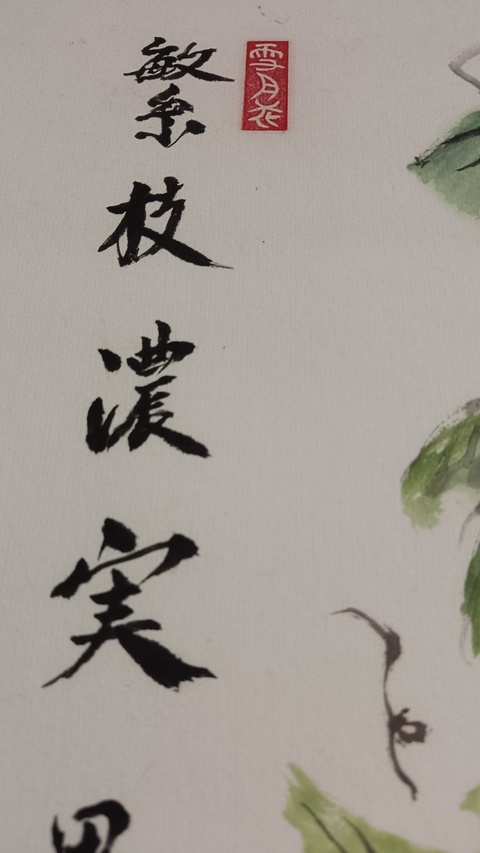 繁枝濃実
雪月花